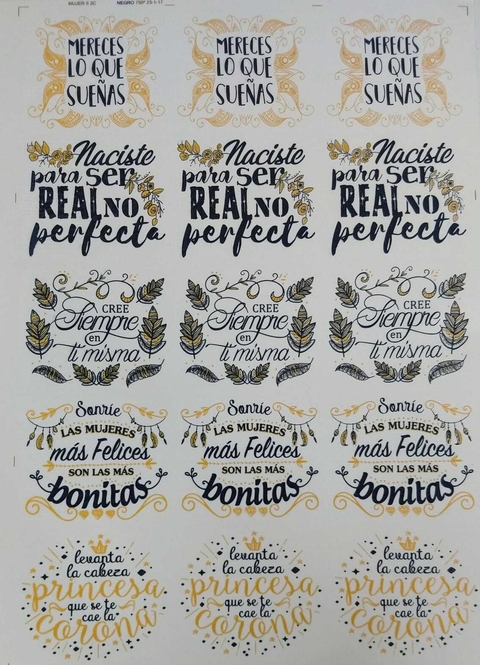 MUJER 5 3C NEGRO TSP 23-1-17
MERECES MERECES MERECES
LO QUE LO QUE LO QUE
SUEÑAS SUEÑAS SUEÑAS
Naciste Naciste Naciste
para ser para ser para ser
REAL NO REAL NO REAL NO
perfecta perfecta perfecta
CREE CREE CREE
Siempre Siempre Siempre
en en en
ti misma ti misma ti misma
Sonríe Sonríe Sonríe
LAS MUJERES LAS MUJERES LAS MUJERES
más Felices más Felices más Felices
SON LAS MÁS SON LAS MÁS SON LAS MÁS
bonitas bonitas bonitas
levanta levanta levanta
la cabeza la cabeza la cabeza
princesa princesa princesa
que se te que se te que se te
cae la cae la cae la
corona corona corona